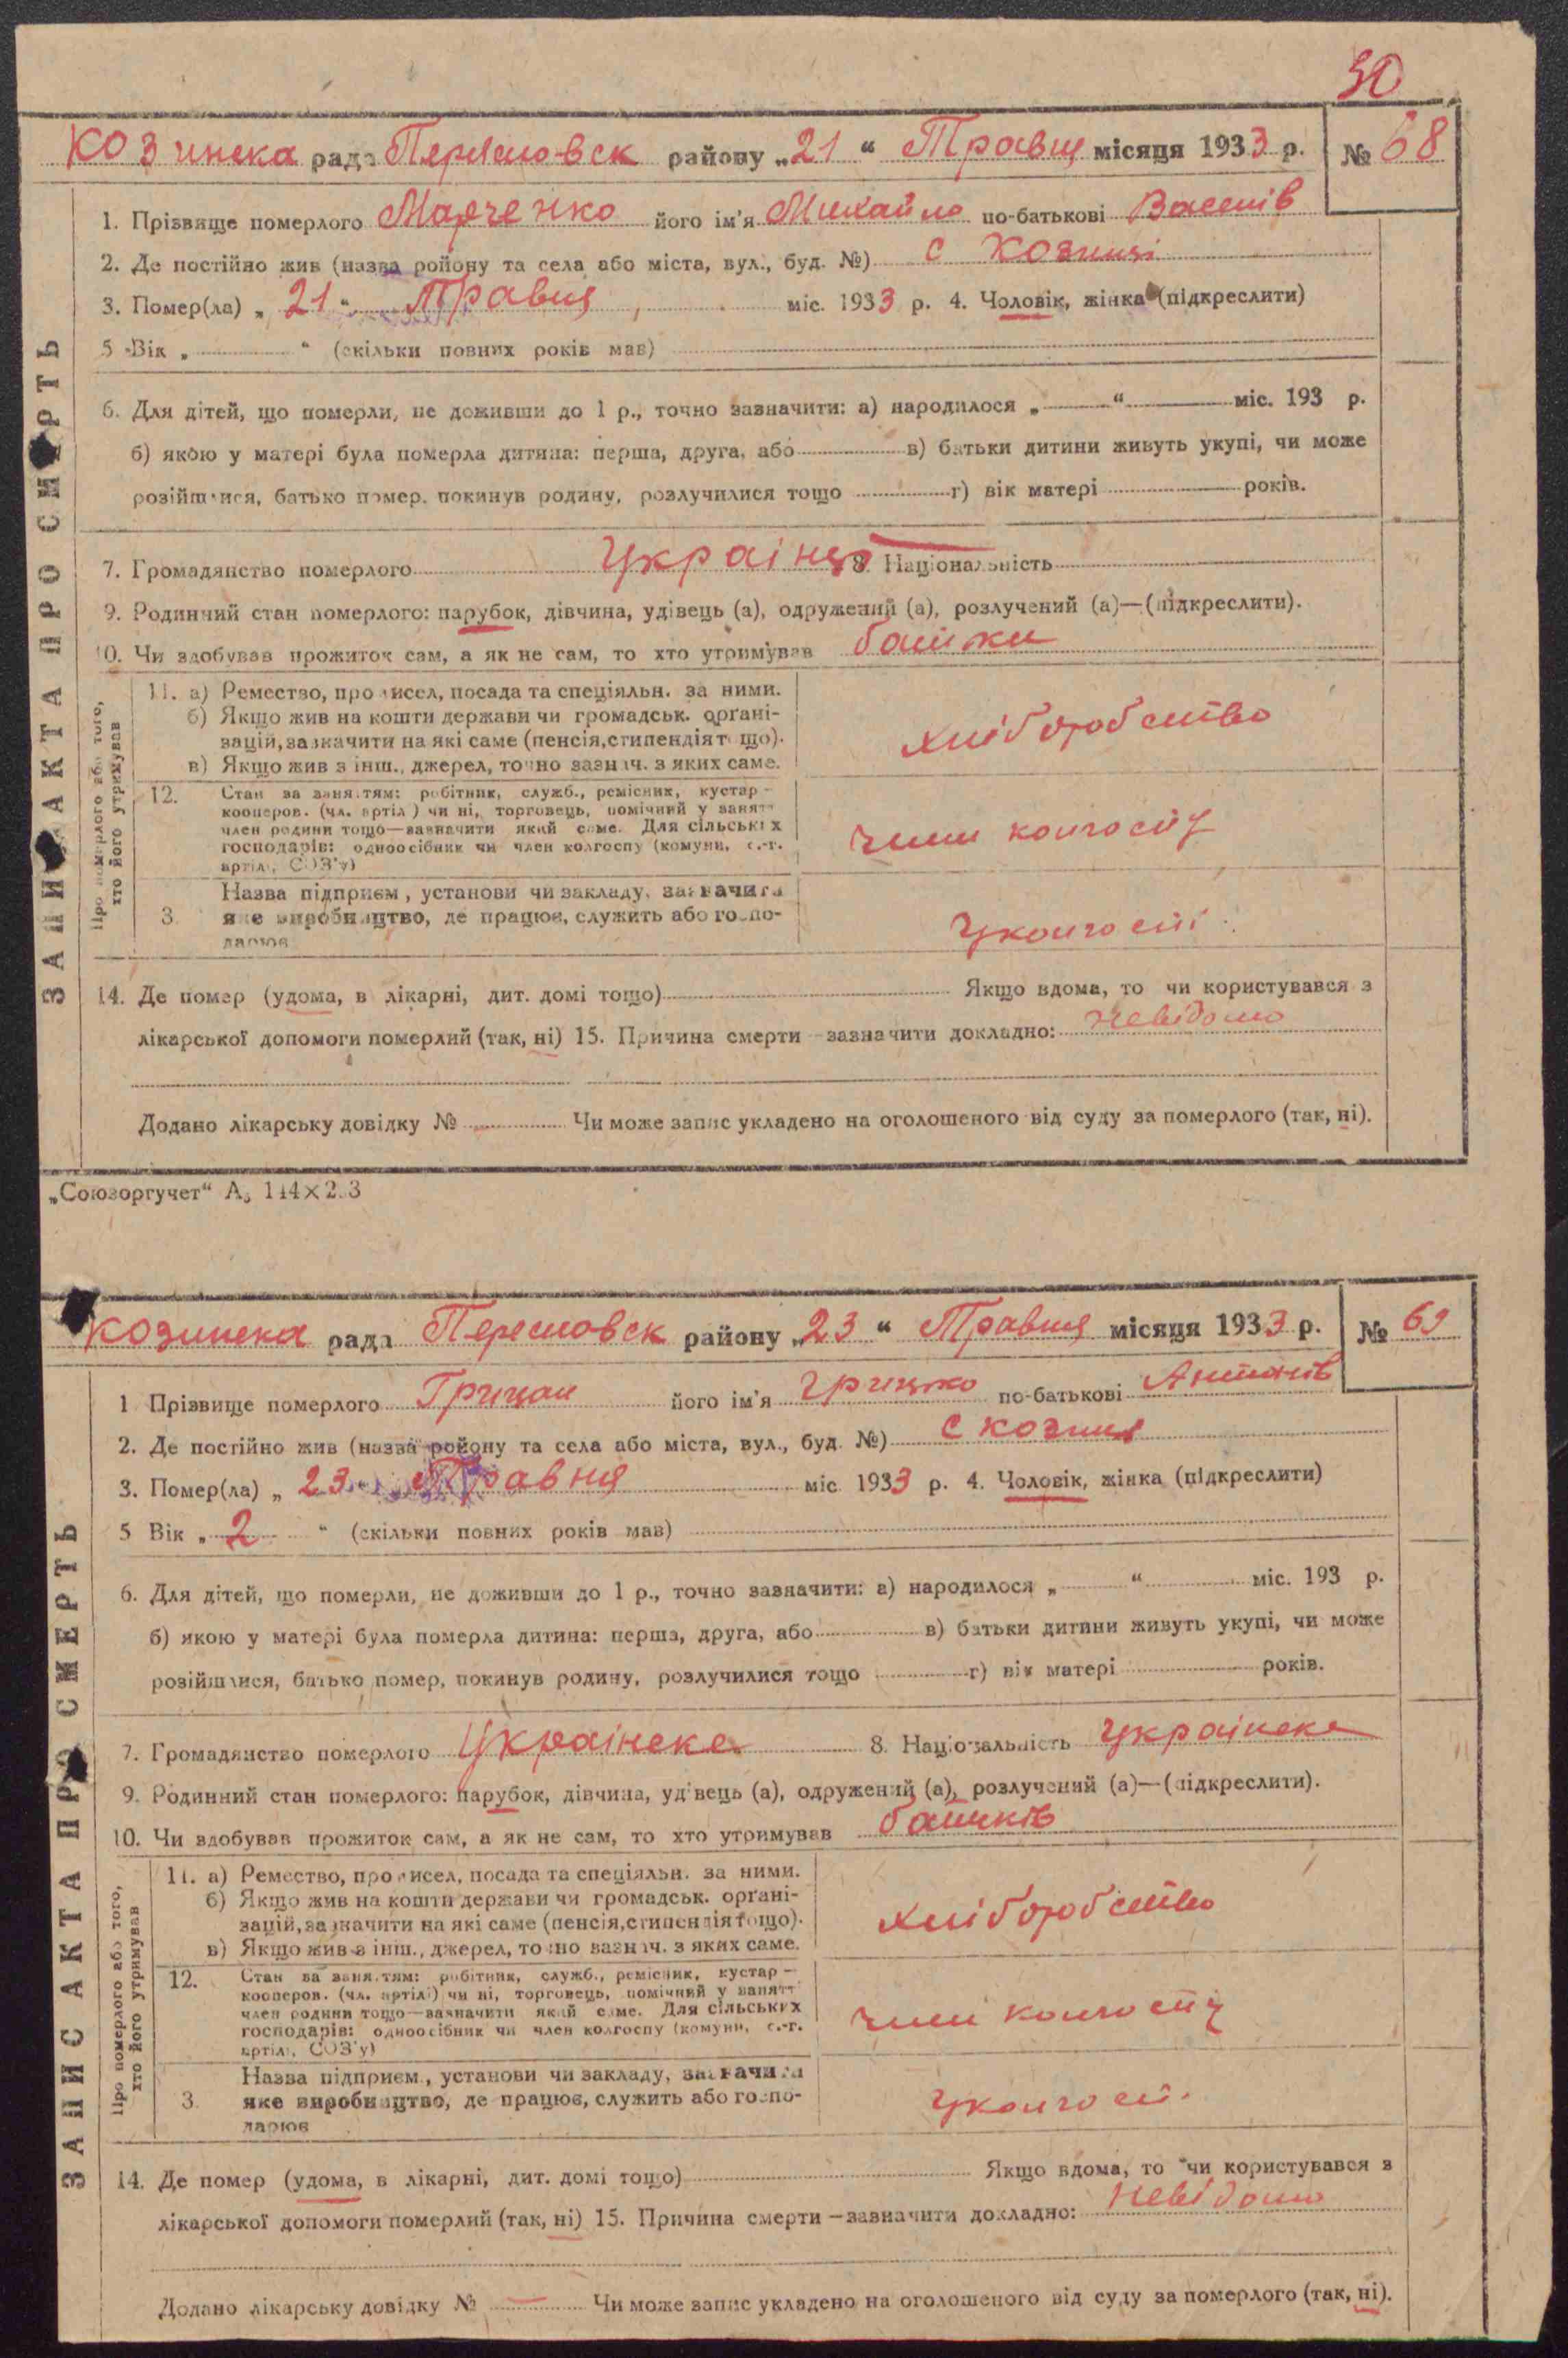 50
Козинска рада Переясловск району „21“ Травня місяця 1933 р. № 68
1. Прізвище померлого Марченко його ім'я Михайло по-батькові Васелів
2. Де постійно жив (назва ройону та села або міста, вул., буд. №) С Козинці
3. Помер(ла) „21“ Травня міс. 1933 р. 4. Чоловік, жінка (підкреслити)
5 Вік „ “ (скільки повних років мав)
6. Для дітей, що померли, не доживши до 1 р., точно зазначити: а) народилося „ “ міс. 193 р.
б) якою у матері була померла дитина: перша, друга, або в) батьки дитини живуть укупі, чи може
розійшлися, батько помер, покинув родину, розлучилися тощо г) вік матері років.
7. Громадянство померлого Украінец 8. Національність
9. Родинний стан померлого: парубок, дівчина, удівець (а), одружений (а), розлучений (а)—(підкреслити).
10. Чи здобував прожиток сам, а як не сам, то хто утримував батьки
ЗАПИС АКТА ПРО СМЕРТЬ
Про померлого або того,
хто його утримував
11. а) Ремество, промисел, посада та спеціяльн. за ними.
б) Якщо жив на кошти держави чи громадськ. органі-
зацій, зазначити на які саме (пенсія, стипендія тощо).
в) Якщо жив з інш., джерел, точно зазнач. з яких саме.
хліборобство
12. Стан за занятям: робітник, служб., ремісник, кустар —
кооперов. (чл. артіл.) чи ні, торговець, помічний у занятт
член родини тощо—зазначити який саме. Для сільських
господарів: одноосібник чи член колгоспу (комуни, с.-г.
артілі, СОЗ'у)
член колгоспу
3. Назва підприєм., установи чи закладу, зазначити
яке виробництво, де працює, служить або госпо-
дарює
у колгоспі
14. Де помер (удома, в лікарні, дит. домі тощо) Якщо вдома, то чи користувався з
лікарської допомоги померлий (так, ні) 15. Причина смерти — зазначити докладно: Невідомо
Додано лікарську довідку № Чи може запис укладено на оголошеного від суду за померлого (так, ні).
„Союзоргучет“ А₅ 144×203
Козинска рада Переясловск району „23“ Травня місяця 1933 р. № 69
1 Прізвище померлого Грицай його ім'я Грицько по-батькові Антонів
2. Де постійно жив (назва ройону та села або міста, вул., буд. №) С Козинці
3. Помер(ла) „23“ Травня міс 1933 р. 4. Чоловік, жінка (підкреслити)
5 Вік „2“ (скільки повних років мав)
6. Для дітей, що померли, не доживши до 1 р., точно зазначити: а) народилося „ “ міс. 193 р.
б) якою у матері була померла дитина: перша, друга, або в) батьки дитини живуть укупі, чи може
розійшлися, батько помер, покинув родину, розлучилися тощо г) вік матері років.
7. Громадянство померлого Украінске 8. Національність Украінске
9. Родинний стан померлого: парубок, дівчина, удівець (а), одружений (а), розлучений (а)—(підкреслити).
10. Чи здобував прожиток сам, а як не сам, то хто утримував батьків
ЗАПИС АКТА ПРО СМЕРТЬ
Про померлого або того,
хто його утримував
11. а) Ремество, промисел, посада та спеціяльн. за ними.
б) Якщо жив на кошти держави чи громадськ. органі-
зацій, зазначити на які саме (пенсія, стипендія тощо).
в) Якщо жив з інш., джерел, точно зазнач. з яких саме.
хліборобство
12. Стан за занятям: робітник, служб., ремісник, кустар —
кооперов. (чл. артілі) чи ні, торговець, помічний у занятт
член родини тощо—зазначити який саме. Для сільських
господарів: одноосібник чи член колгоспу (комуни, с.-г.
артілі, СОЗ'у)
член колгоспу
3. Назва підприєм., установи чи закладу, зазначити
яке виробництво, де працює, служить або госпо-
дарює
у колгосп.
14. Де помер (удома, в лікарні, дит. домі тощо) Якщо вдома, то чи користувався з
лікарської допомоги померлий (так, ні) 15. Причина смерти — зазначити докладно: Невідомо
Додано лікарську довідку № — Чи може запис укладено на оголошеного від суду за померлого (так, ні).